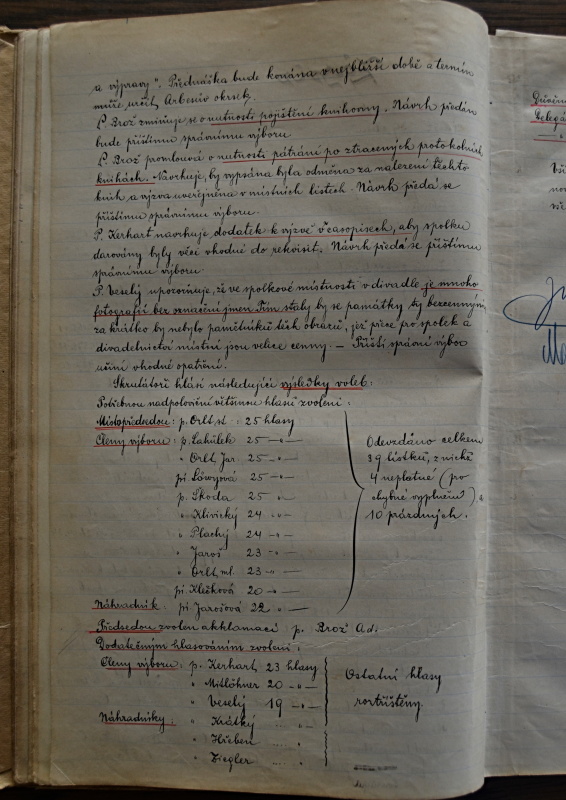 a výpravy". Přednáška bude konána v nejbližší době a termín
může určit Arbesův okrsek.
P. Brož zmiňuje se o nutnosti pojištění knihovny. Návrh předán
bude příštímu správnímu výboru.
P. Brož promlouvá o nutnosti pátrání po ztracených protokolních
knihách. Navrhuje, by vypsána byla odměna za nalezení těchto
knih a výzva uveřejněna v místních listech. Návrh předá se
příštímu správnímu výboru.
P. Kerhart navrhuje dodatek k výzvě v časopisech, aby spolku
darovány byly věci vhodné do rekvisit. Návrh předá se příštímu
správnímu výboru
P. Veselý upozorňuje, že ve spolkové místnosti v divadle je mnoho
fotografií bez označení jmen. Tím staly by se památky ty bezcennými,
za krátko by nebylo pamětníků těch obrazů, jež přece pro spolek a
divadelnictví místní jsou velice cenny. — Příští správní výbor
učiní vhodné opatření.
Skrutátoři hlásí následující výsledky voleb:
Potřebnou nadpoloviční většinou hlasů zvoleni:
Místopředsedou: p. Orlt st. : 25 hlasy
Členy výboru: p. Lahůlek 25 —"—
" Orlt Jar. 25 —"—
pí 25 —"—
p. Škoda 25 "
" Klivický 24 "—
" Plachý 24 —"—
" Jaroš 23 —"—
" Orlt ml. 23 —"—
pí Klečková 20 —"—
Náhradník: pí Jarošová 22 "—
Odevzdáno celkem
39 lístků, z nichž
4 neplatné (pro
chybné vyplnění) a
10 prázdných.
Předsedou zvolen akklamací p. Brož Ad.
Dodatečným hlasováním zvoleni:
Členy výboru: p. Kerhart, 23 hlasy
" Mitlöhner 20 —"—
" Veselý 19 —"—
Náhradníky: " Krátký .... "
" Hřeben .... "
" Ziegler .... "
Ostatní hlasy
roztříštěny.